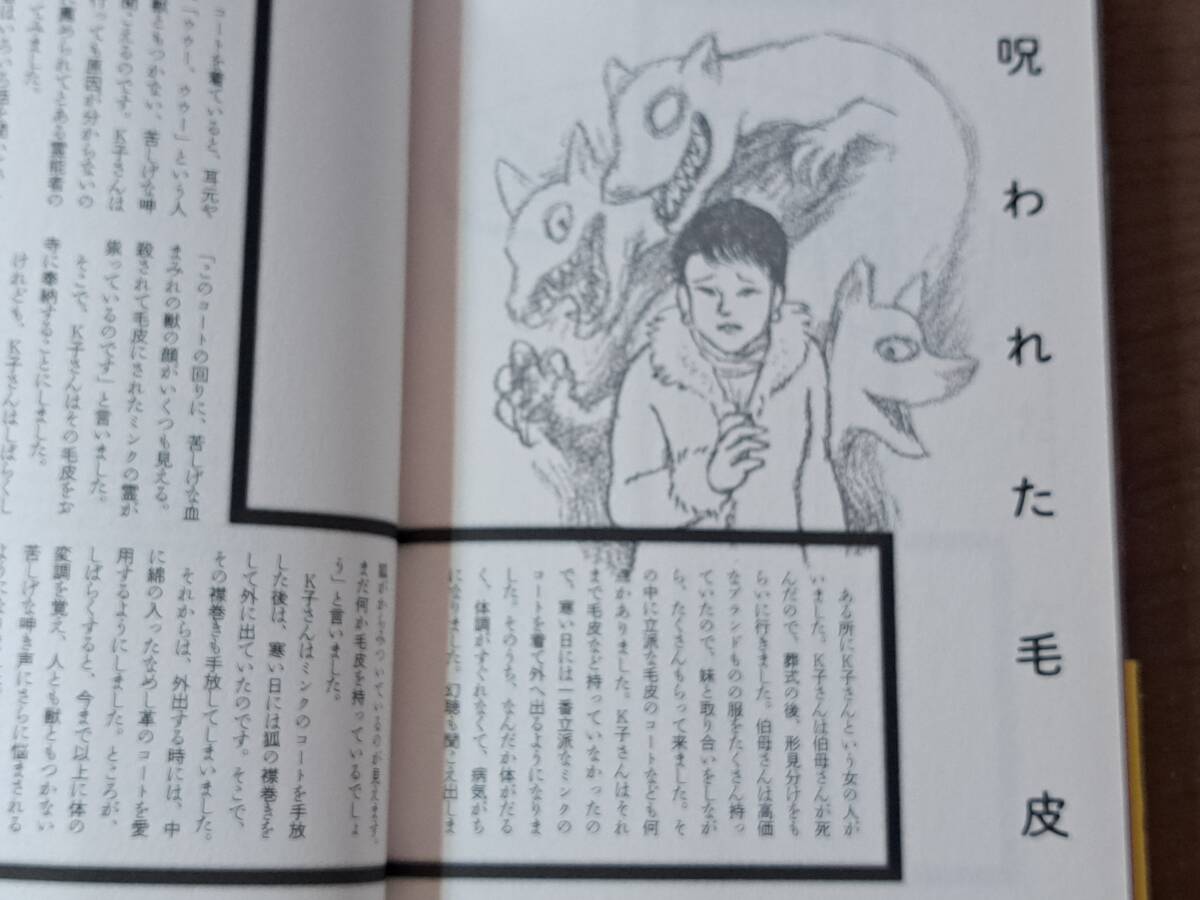 呪われた毛皮
ある所にK子さんという女の人が
いました。K子さんは伯母さんが死
んだので、葬式の後、形見分けをも
らいに行きました。伯母さんは高価
なブランドものの服をたくさん持っ
ていたので、妹と取り合いをしなが
ら、たくさんもらって来ました。そ
の中に立派な毛皮のコートなども何
着かありました。K子さんはそれ
まで毛皮など持っていなかったの
で、寒い日には一番立派なミンクの
コートを着て外へ出るようになりま
した。そのうち、なんだか体がだる
く、体調がすぐれなくて、病気がち
になりました。幻聴も聞こえ出しま
コートを着ていると、耳元や
「ゥゥー、ゥゥー」という人
獣ともつかない、苦しげな呻
聞こえるのです。K子さんは
行っても原因が分からないの
に薦められてとある霊能者の
てみました。
「このコートの回りに、苦しげな血
まみれの獣の顔がいくつも見える。
殺されて毛皮にされたミンクの霊が
祟っているのです」と言いました。
そこで、K子さんはその毛皮をお
寺に奉納することにしました。
けれども、K子さんはしばらくし
まだ何か毛皮を持っているでしょ
う」と言いました。
K子さんはミンクのコートを手放
した後は、寒い日には狐の襟巻きを
して外に出ていたのです。そこで、
その襟巻きも手放してしまいました。
それからは、外出する時には、中
に綿の入ったなめし革のコートを愛
用するようにしました。ところが、
しばらくすると、今まで以上に体の
変調を覚え、人とも獣ともつかない
苦しげな呻き声にさらに悩まされる